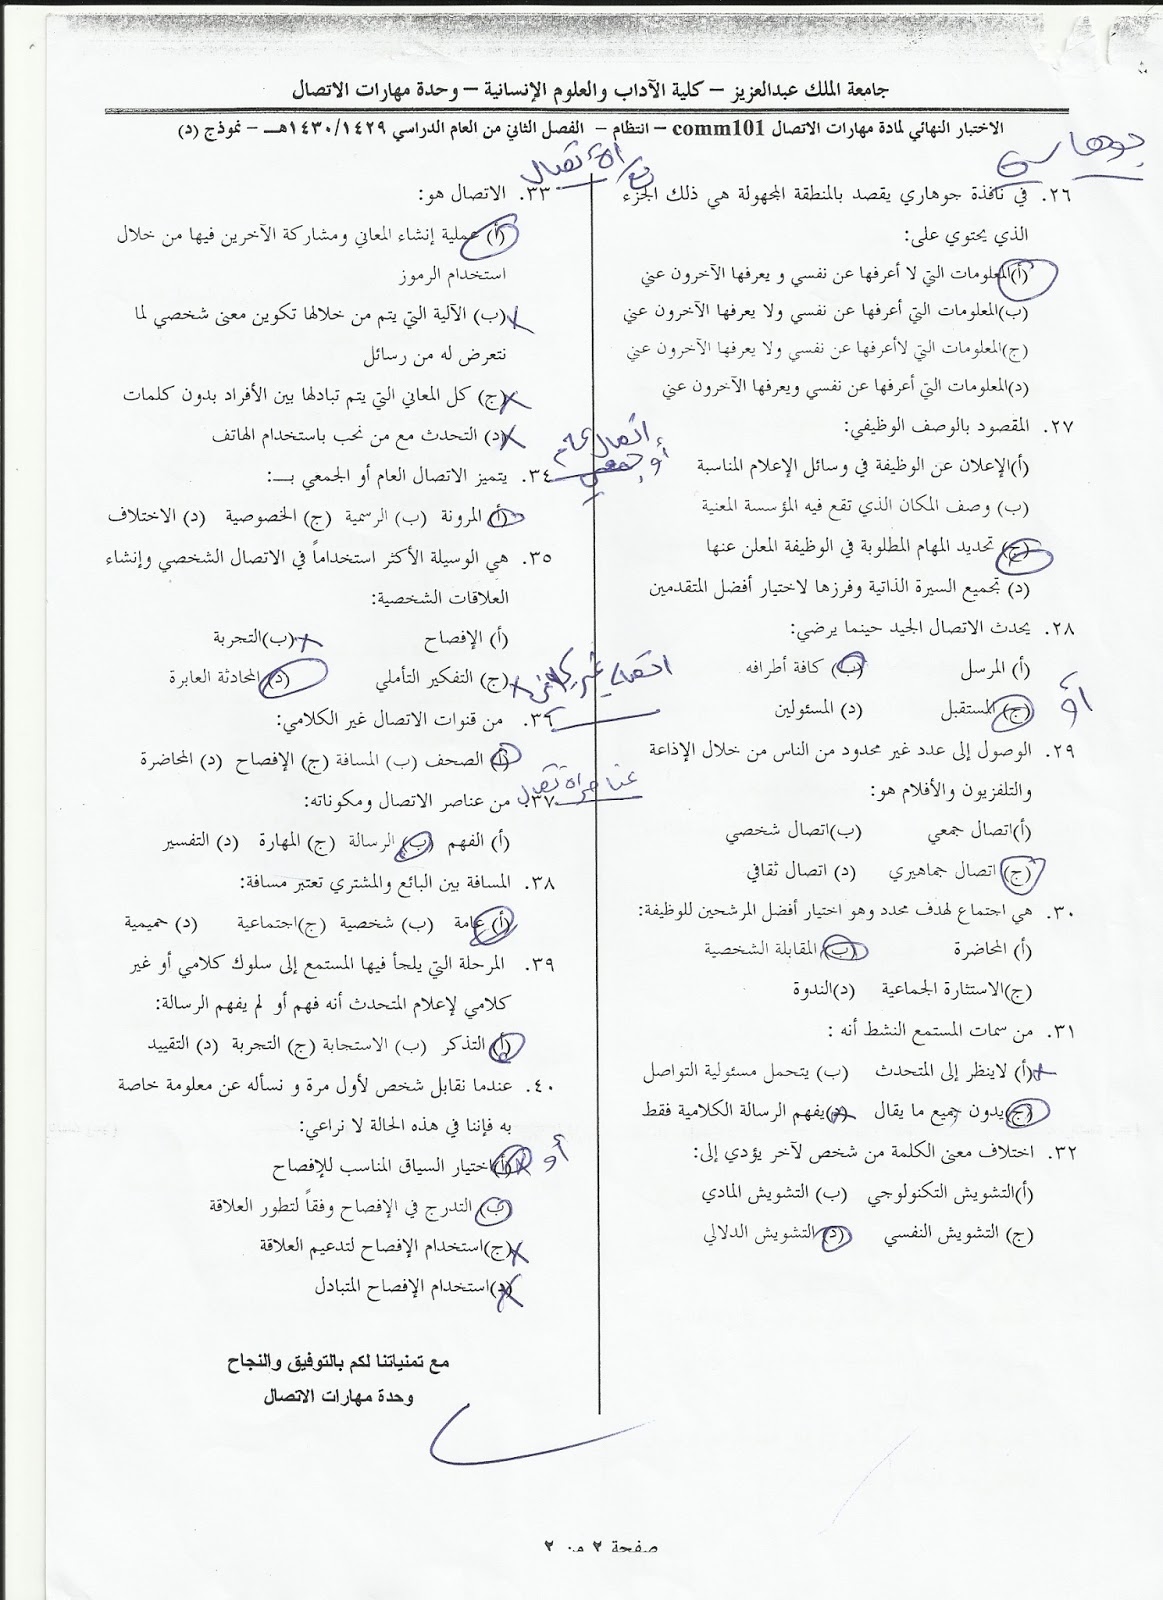 جامعة الملك عبدالعزيز – كلية الآداب والعلوم الإنسانية – وحدة مهارات الاتصال
الاختبار النهائي لمادة مهارات الاتصال comm101 – انتظام – الفصل الثاني من العام الدراسي ١٤٣٠/١٤٢٩هـ – نموذج (د)
جوهاري
٢٦. في نافذة جوهاري يقصد بالمنطقة المجهولة هي ذلك الجزء
الذي يحتوي على:
(أ) المعلومات التي لا أعرفها عن نفسي و يعرفها الآخرون عني
(ب)المعلومات التي أعرفها عن نفسي ولا يعرفها الآخرون عني
(ج)المعلومات التي لاأعرفها عن نفسي ولا يعرفها الآخرون عني
(د)المعلومات التي أعرفها عن نفسي ويعرفها الآخرون عني
٢٧. المقصود بالوصف الوظيفي:
(أ)الإعلان عن الوظيفة في وسائل الإعلام المناسبة
(ب) وصف المكان الذي تقع فيه المؤسسة المعنية
(ج) تحديد المهام المطلوبة في الوظيفة المعلن عنها
(د) تجميع السيرة الذاتية وفرزها لاختيار أفضل المتقدمين
٢٨. يحدث الاتصال الجيد حينما يرضي:
(أ) المرسل (ب) كافة أطرافه
أو (ج) المستقبل (د) المسئولين
٢٩. الوصول إلى عدد غير محدود من الناس من خلال الإذاعة
والتلفزيون والأفلام هو:
(أ)اتصال جمعي (ب)اتصال شخصي
(ج) اتصال جماهيري (د) اتصال ثقافي
٣٠. هي اجتماع لهدف محدد وهو اختيار أفضل المرشحين للوظيفة:
(أ) المحاضرة (ب) المقابلة الشخصية
(ج)الاستثارة الجماعية (د)الندوة
٣١. من سمات المستمع النشط أنه :
(أ) لاينظر إلى المتحدث (ب) يتحمل مسئولية التواصل
(ج)يدون جميع ما يقال (د)يفهم الرسالة الكلامية فقط
٣٢. اختلاف معنى الكلمة من شخص لآخر يؤدي إلى:
(أ)التشويش التكنولوجي (ب) التشويش المادي
(ج) التشويش النفسي (د)التشويش الدلالي
الاتصال
٣٣. الاتصال هو:
(أ) عملية إنشاء المعاني ومشاركة الآخرين فيها من خلال
استخدام الرموز
(ب) الآلية التي يتم من خلالها تكوين معنى شخصي لما
نتعرض له من رسائل
(ج) كل المعاني التي يتم تبادلها بين الأفراد بدون كلمات
(د) التحدث مع من نحب باستخدام الهاتف
اتصال عام
أو جمعي
٣٤. يتميز الاتصال العام أو الجمعي بـــ:
(أ) المرونة (ب) الرسمية (ج) الخصوصية (د) الاختلاف
٣٥. هي الوسيلة الأكثر استخداماً في الاتصال الشخصي وإنشاء
العلاقات الشخصية:
(أ) الإفصاح (ب)التجربة
(ج) التفكير التأملي (د) المحادثة العابرة
اتصال غير كلامي
٣٦. من قنوات الاتصال غير الكلامي:
(أ) الصحف (ب) المسافة (ج) الإفصاح (د) المحاضرة
عناصر الاتصال
٣٧. من عناصر الاتصال ومكوناته:
(أ) الفهم (ب) الرسالة (ج) المهارة (د) التفسير
٣٨. المسافة بين البائع والمشتري تعتبر مسافة:
(أ) عامة (ب) شخصية (ج)اجتماعية (د) حميمية
٣٩. المرحلة التي يلجأ فيها المستمع إلى سلوك كلامي أو غير
كلامي لإعلام المتحدث أنه فهم أو لم يفهم الرسالة:
(أ) التذكر (ب) الاستجابة (ج) التجربة (د) التقييد
٤٠. عندما نقابل شخص لأول مرة و نسأله عن معلومة خاصة
به فإننا في هذه الحالة لا نراعي:
أو (أ)اختيار السياق المناسب للإفصاح
(ب) التدرج في الإفصاح وفقاً لتطور العلاقة
(ج)استخدام الإفصاح لتدعيم العلاقة
(د)استخدام الإفصاح المتبادل
مع تمنياتنا لكم بالتوفيق والنجاح
وحدة مهارات الاتصال
صفحة ٢ من ٢